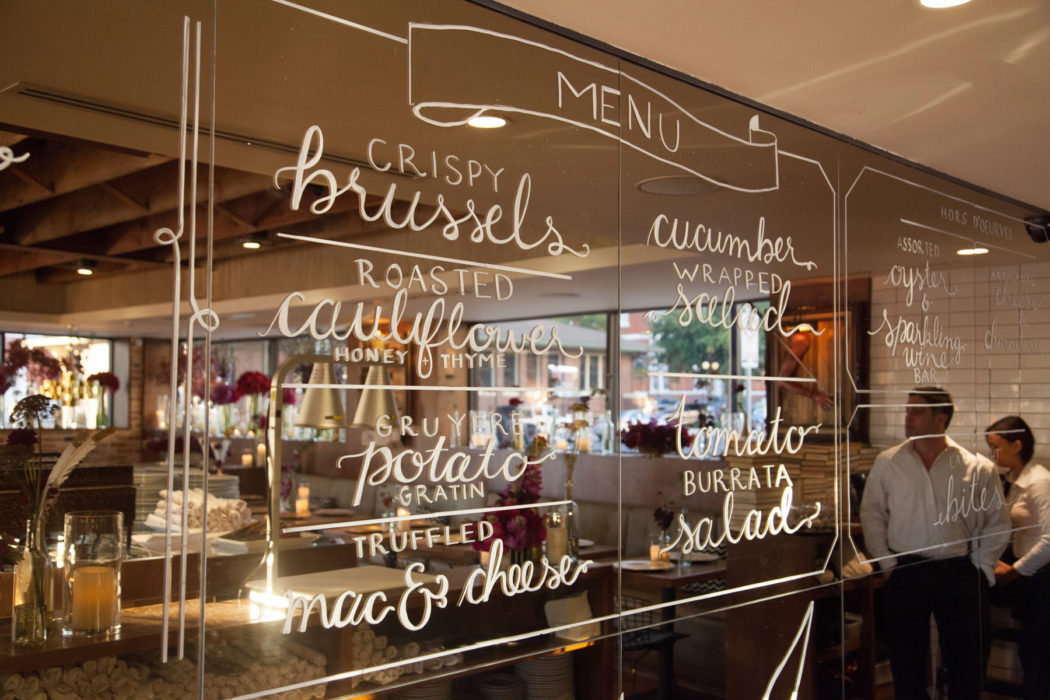 MENU
CRISPY
brussels
ROASTED
cauliflower
HONEY + THYME
GRUYERE
potato
GRATIN
TRUFFLED
mac & cheese
cucumber
WRAPPED
salad
tomato
BURRATA
salad
HORS D'OEURVES
ASSORTED
oyster
&
sparkling
wine
BAR
bites